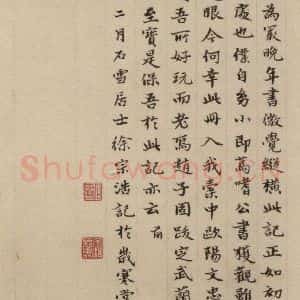 為最晚年書微覺縱橫此記正如初
處也僕自努小即篤嗜公書獲觀雖
眼今何幸此冊入我橐中歐陽文忠
吾所好玩而老焉趙子固跋定武蘭
至寶是保吾於此記亦云
二月石雪居士徐宗浩記於歲寒堂
Shufawang.cn